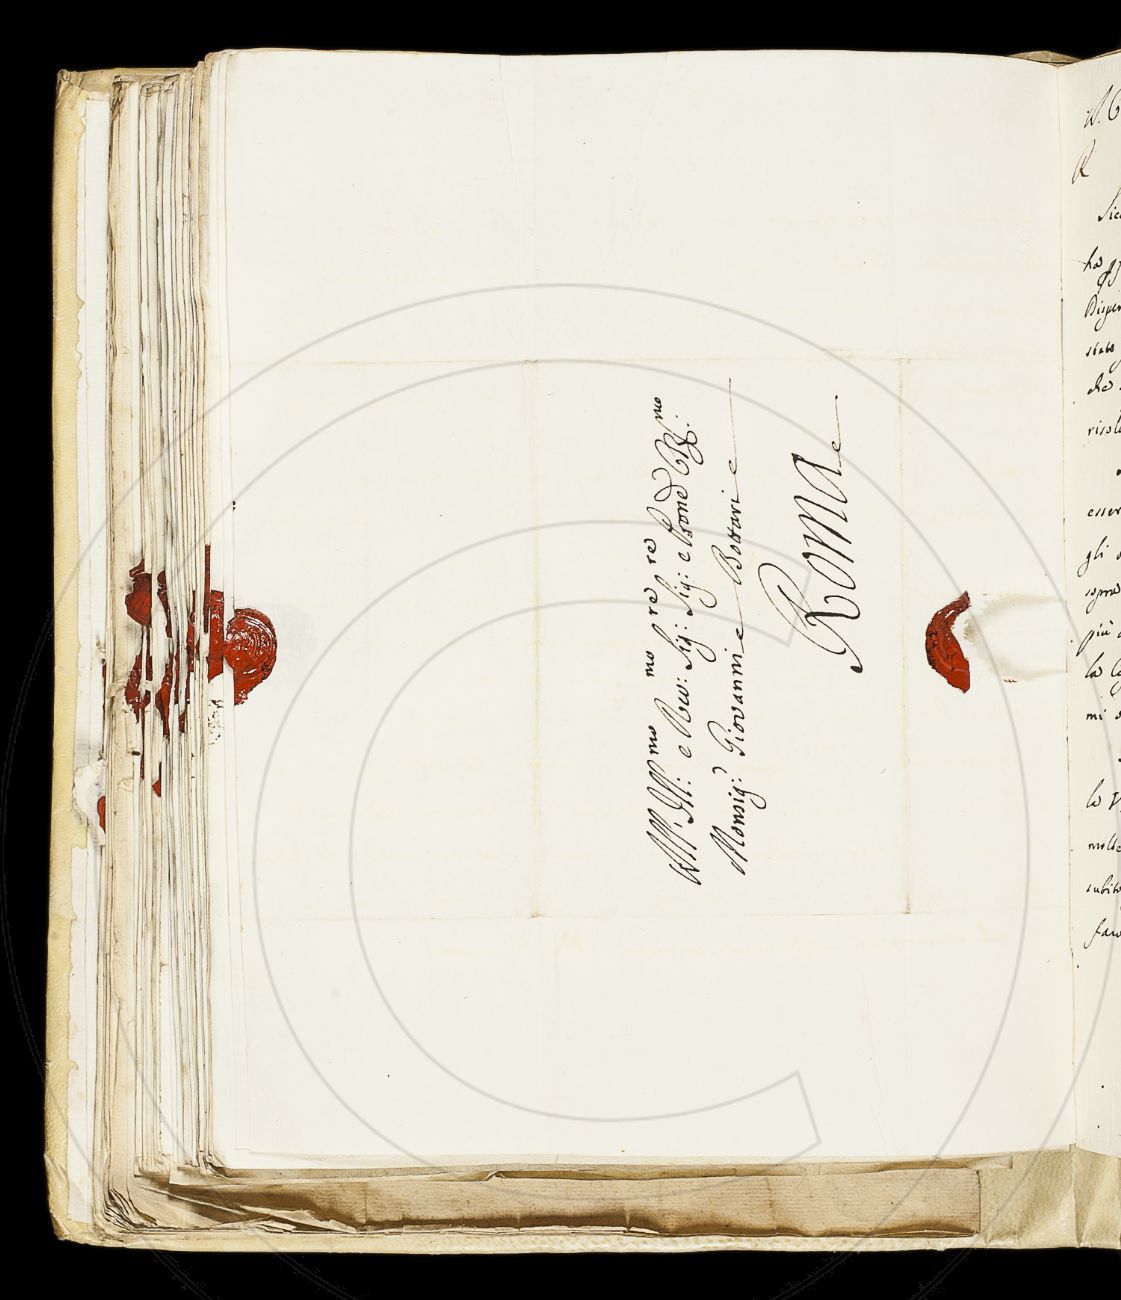 All' Ill:mo e Rev:mo Sig:re Sig:re e Pron̄e Col:mo
Monsig:r Giovanni Bottari
Roma
W. G
R
Sic
ha
Disper
stato
che
risol
esser
gli
sopra
più
la
mi
lo
molte
subito